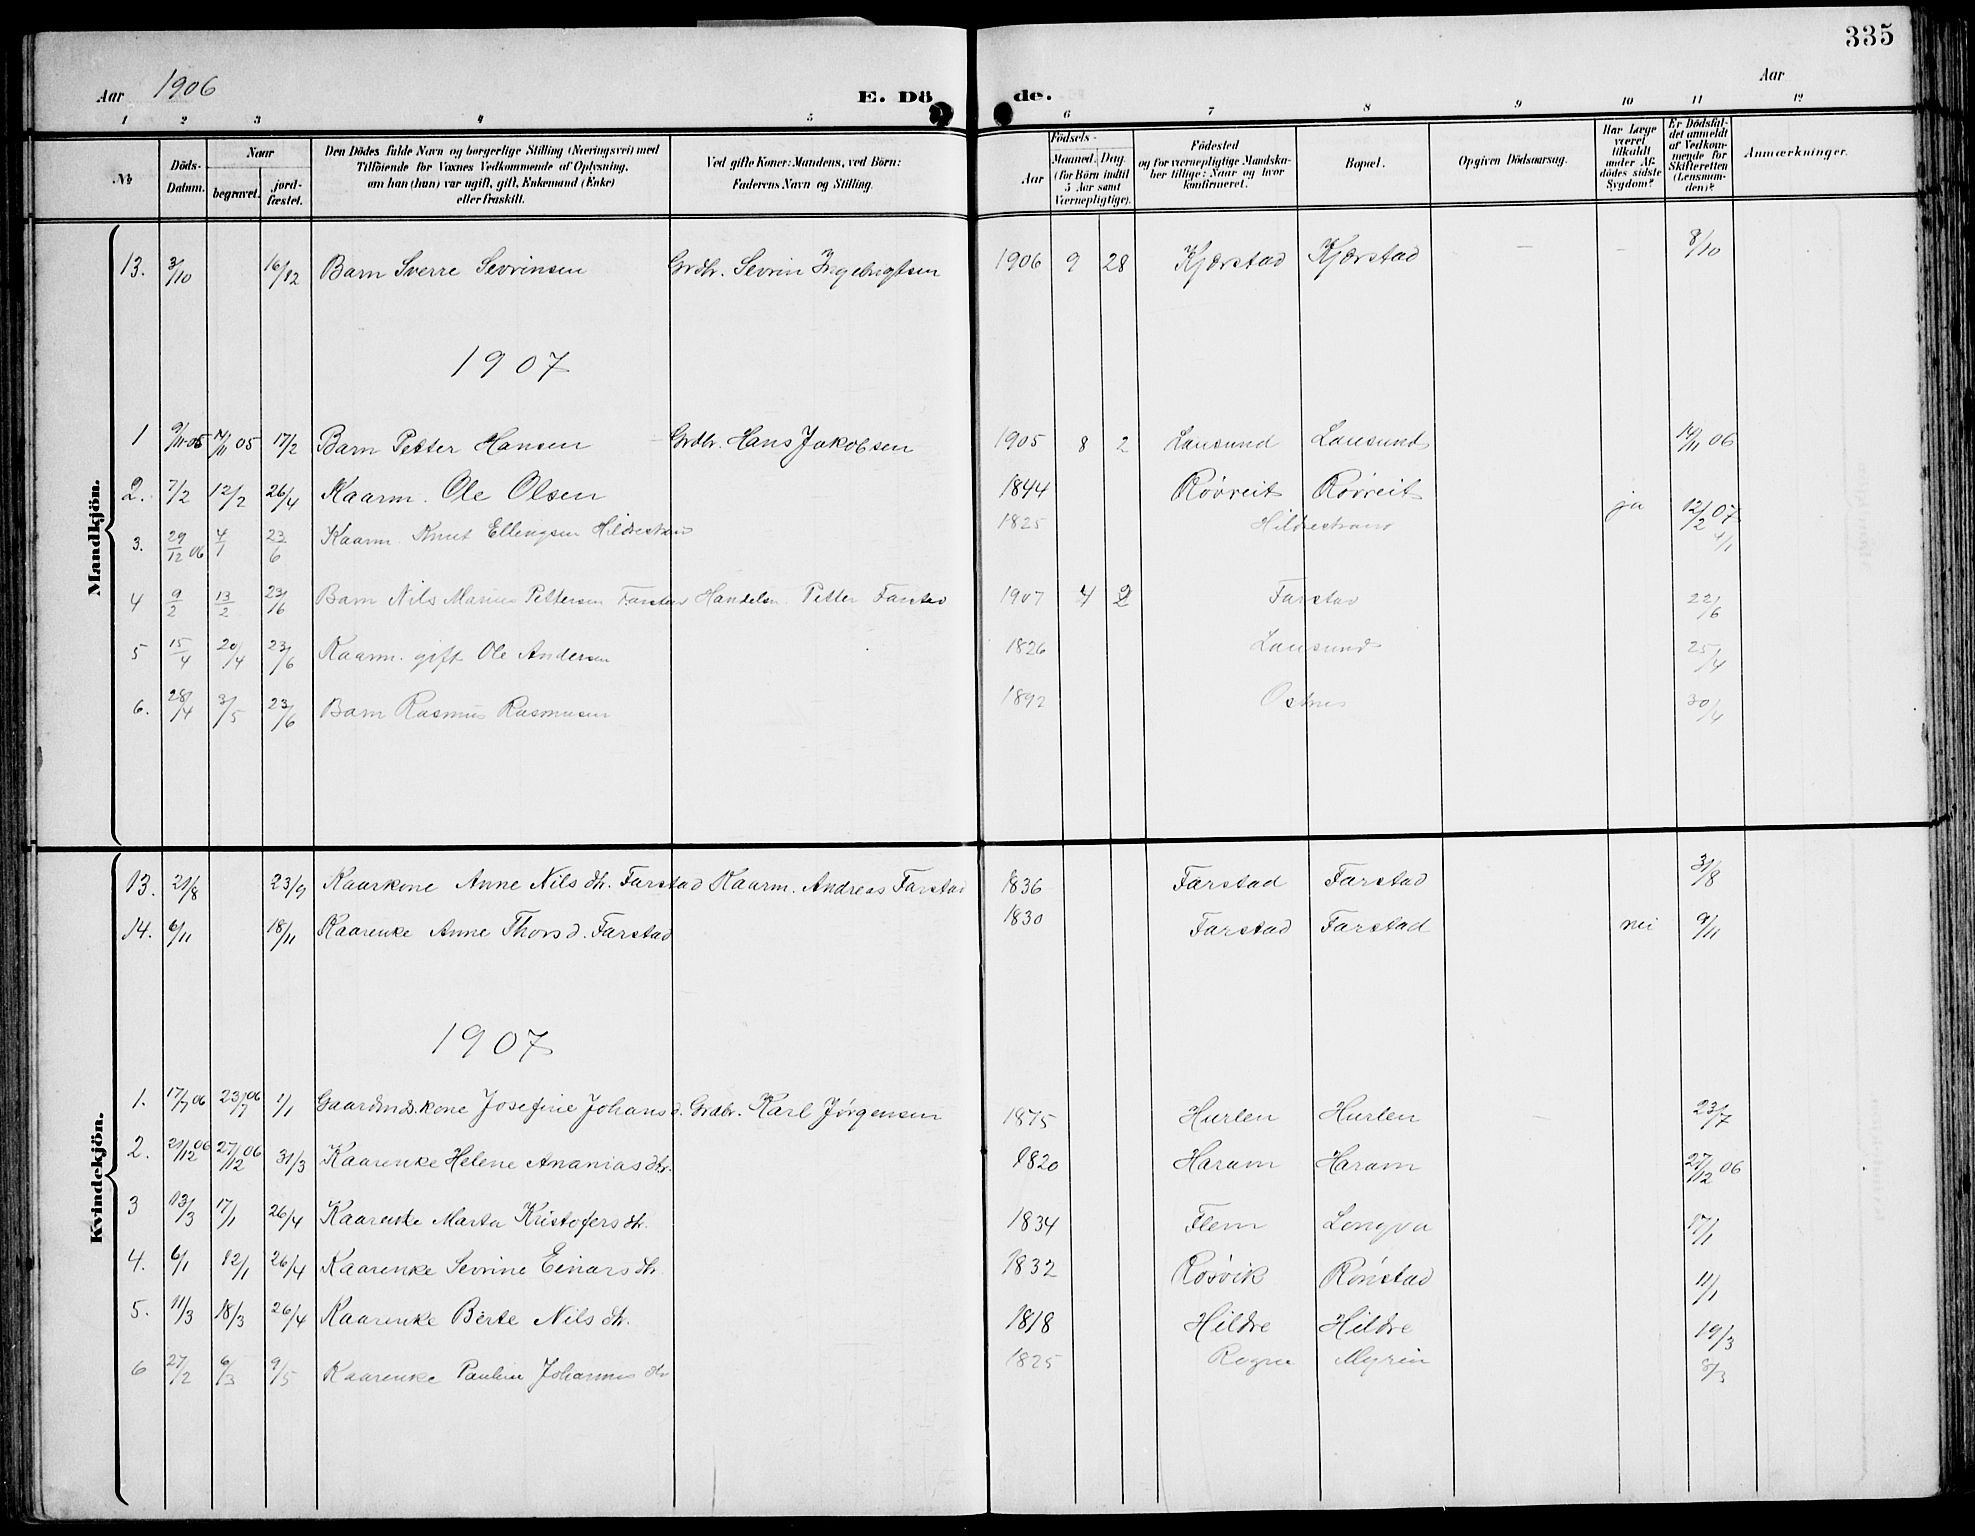 335
Aar 1906 E. Dö de. Aar
1 2 3 4 5 6 7 8 9 10 11 12
№ Döds-Datum. Naar begravet. jord-fæstet. Den Dödes fulde Navn og borgerlige Stilling (Næringsvei) med Tilföiende for Voxnes Vedkommende af Oplysning, om han (hun) var ugift, gift, Enkemand (Enke) eller fraskilt. Ved gifte Koner: Mandens, ved Börn: Faderens Navn og Stilling. Födsels- Aar Maaned. Dag. (for Börn indtil 5 Aar samt Værnepligtige). Födested og for værnepligtige Mandskaber tillige: Naar og hvor konfirmeret. Bopæl. Opgiven Dödsaarsag. Har Læge været tilkaldt under Afdödes sidste Sygdom? Er Dödsfaldet anmeldt af Vedkommende for Skifteretten (Lensmanden)? Anmærkninger.
Mandkjön.
13. 3/10 16/12 Barn Sverre Sevrinsen Grdbr. Sevrin Ingebrigtsen 1906 9 28 Kjærstad Kjærstad — — 8/10
1907
1 9/11 05 14/11 05 17/2 Barn Petter Hansen Grdbr. Hans Jakobsen 1905 8 2 Lausund Lausund 14/11 06
2. 7/2 12/2 26/4 Kaarm. Ole Olsen 1844 Rövreit Rövreit ja 12/2 07
3. 29/12 06 4/1 23/6 Kaarm. Knut Ellengsen Hildrestrand 1825 Hildrestrand 4/1
4 9/2 13/2 23/6 Barn Nils Marius Pettersen Farstad Handelsm. Petter Farstad 1907 4 2 Farstad 22/6
5 15/4 20/4 23/6 Kaarm. gift Ole Andersen 1826 Lausund 25/4
6. 28/4 3/5 23/6 Barn Rasmus Rasmusen 1892 Ostnes 30/4
Kvindekjön.
13. 21/8 23/9 Kaarkone Anne Nilsdtr. Farstad Kaarm. Andreas Farstad 1836 Farstad Farstad 31/8
14. 6/11 18/11 Kaarenke Anne Thorsd. Farstad 1830 Farstad Farstad nei 9/11
1907
1. 17/7 06 23/7 06 1/1 Gaardmdskone Josefine Johansd. Grdbr. Karl Jörgensen 1875 Hurlen Hurlen 23/7
2. 21/12 06 27/12 06 31/3 Kaarenke Helene Ananiasdtr. 1820 Haram Haram 27/12 06
3 13/3 17/1 26/4 Kaarenke Marta Kristofersdtr. 1834 Flem Longva 17/1
4. 6/1 12/1 26/4 Kaarenke Sevrine Einarsdtr. 1832 Rösvik Rönstad 11/1
5. 11/3 18/3 26/4 Kaarenke Berte Nilsdtr. 1818 Hildre Hildre 19/3
6 27/2 6/3 9/5 Kaarenke Pauline Johannesdtr 1825 Rogne Myrin 8/3